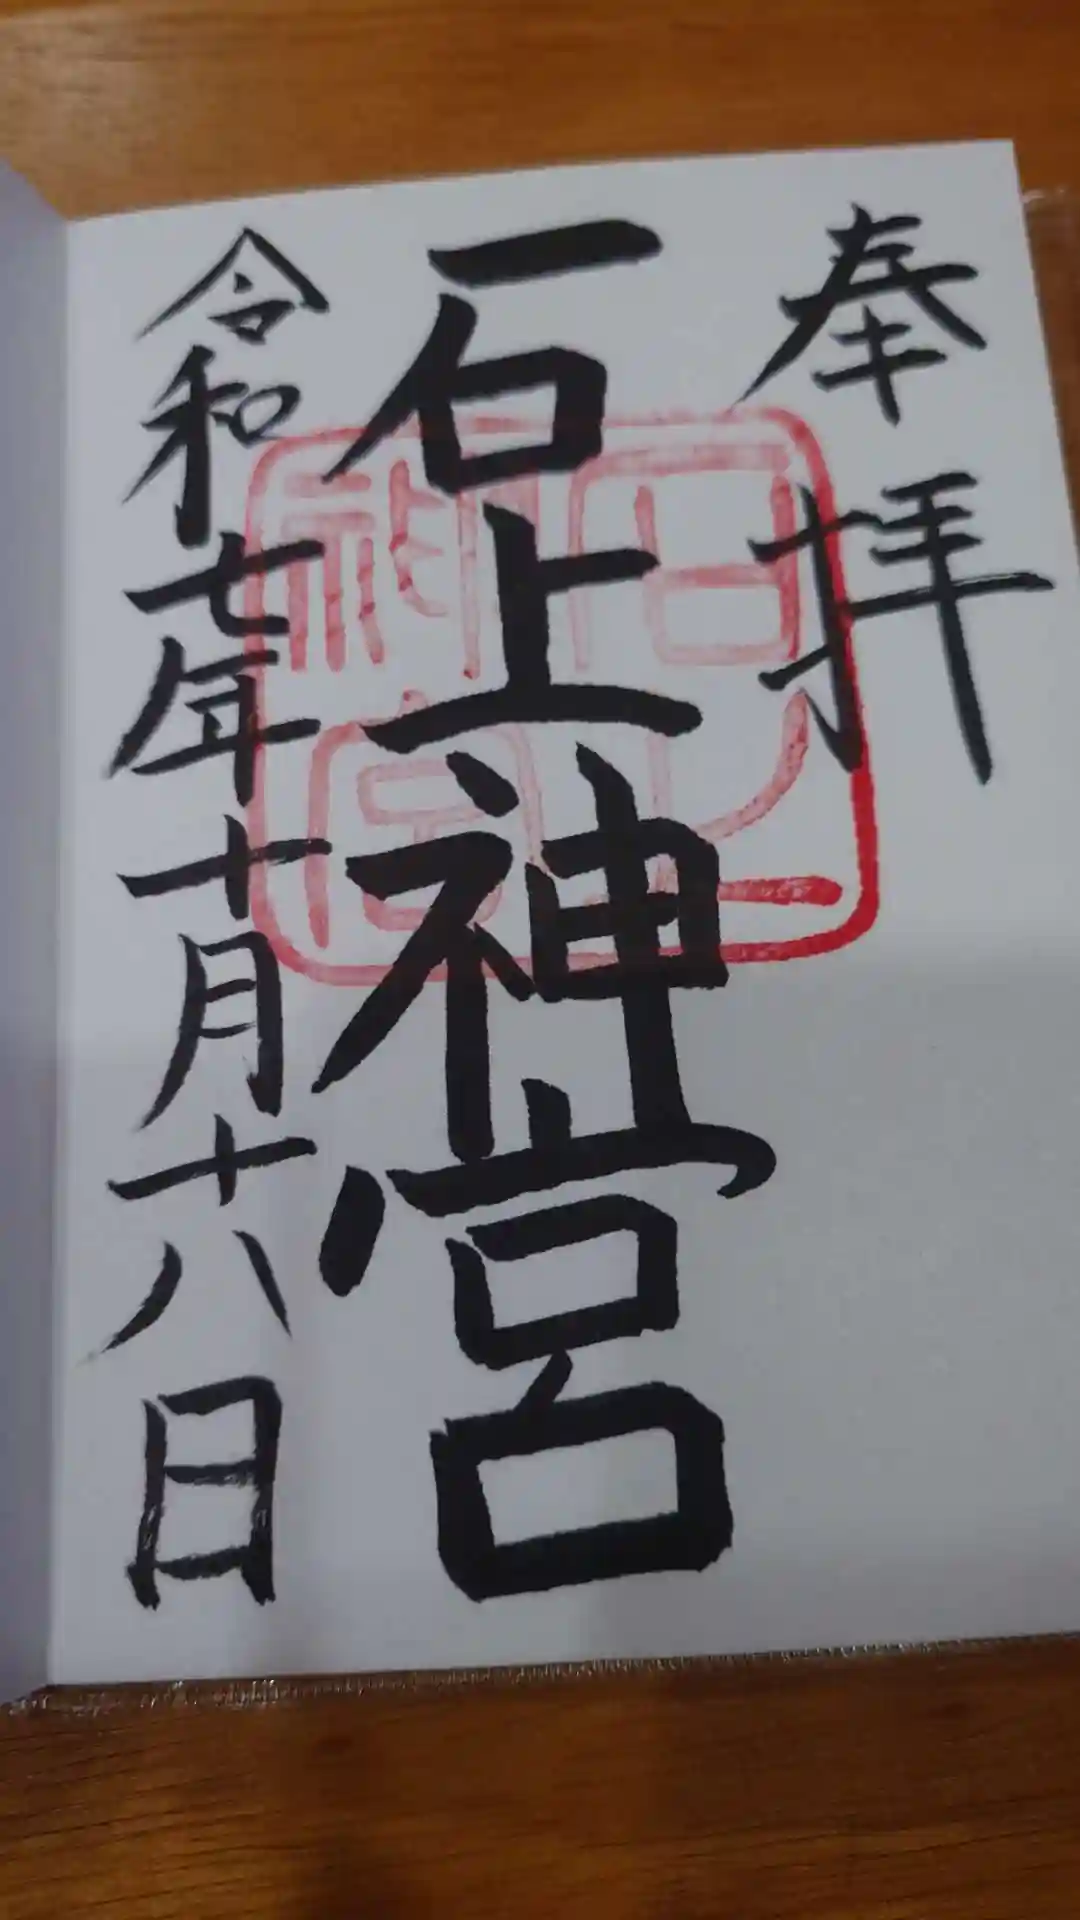 奉拝
石上神宮
令和七年十月十八日
石上神宮